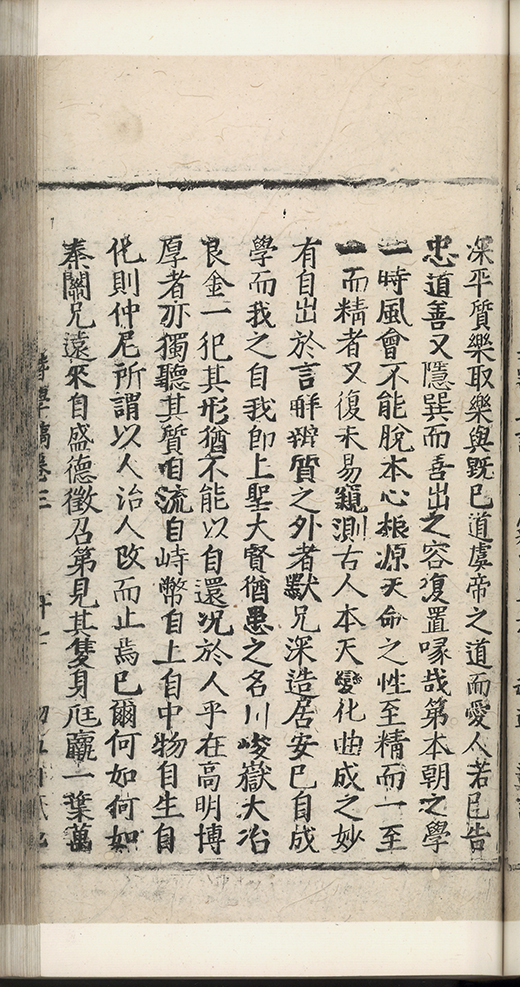 深平質樂取樂與既已道虞帝之道而愛人若已告
忠道善又隱巽而善出之容復置喙哉第本朝之學
一時風會不能脫本心根源天命之性至精而一至
一而精者又復未易窺測古人本天變化曲成之妙
有自出於言辭質之外者默兄深造居安已自成
學而我之自我即上聖大賢猶患之名川峻嶽大冶
良金一犯其形猶不能以自還況於人乎在高明博
厚者亦獨聽其質自流自峙幣自上自中物自生自
化則仲尼所謂以人治人改而止焉已爾何如何如
秦關兄遠來自盛德徵召第見其隻身尫羸一葉萬
卷三